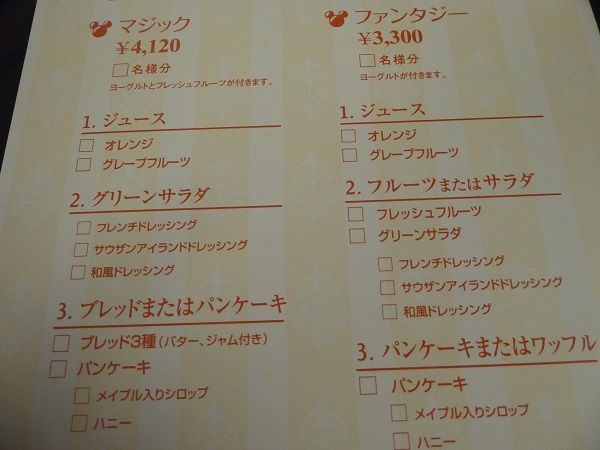 マジック
¥4,120
□名様分
ヨーグルトとフレッシュフルーツが付きます。
1. ジュース
□ オレンジ
□ グレープフルーツ
2. グリーンサラダ
□ フレンチドレッシング
□ サウザンアイランドドレッシング
□ 和風ドレッシング
3. ブレッドまたはパンケーキ
□ ブレッド3種(バター、ジャム付き)
□ パンケーキ
□ メイプル入りシロップ
□ ハニー
ファンタジー
¥3,300
□名様分
ヨーグルトが付きます。
1. ジュース
□ オレンジ
□ グレープフルーツ
2. フルーツまたはサラダ
□ フレッシュフルーツ
□ グリーンサラダ
□ フレンチドレッシング
□ サウザンアイランドドレッシング
□ 和風ドレッシング
3. パンケーキまたはワッフル
□ パンケーキ
□ メイプル入りシロップ
□ ハニー